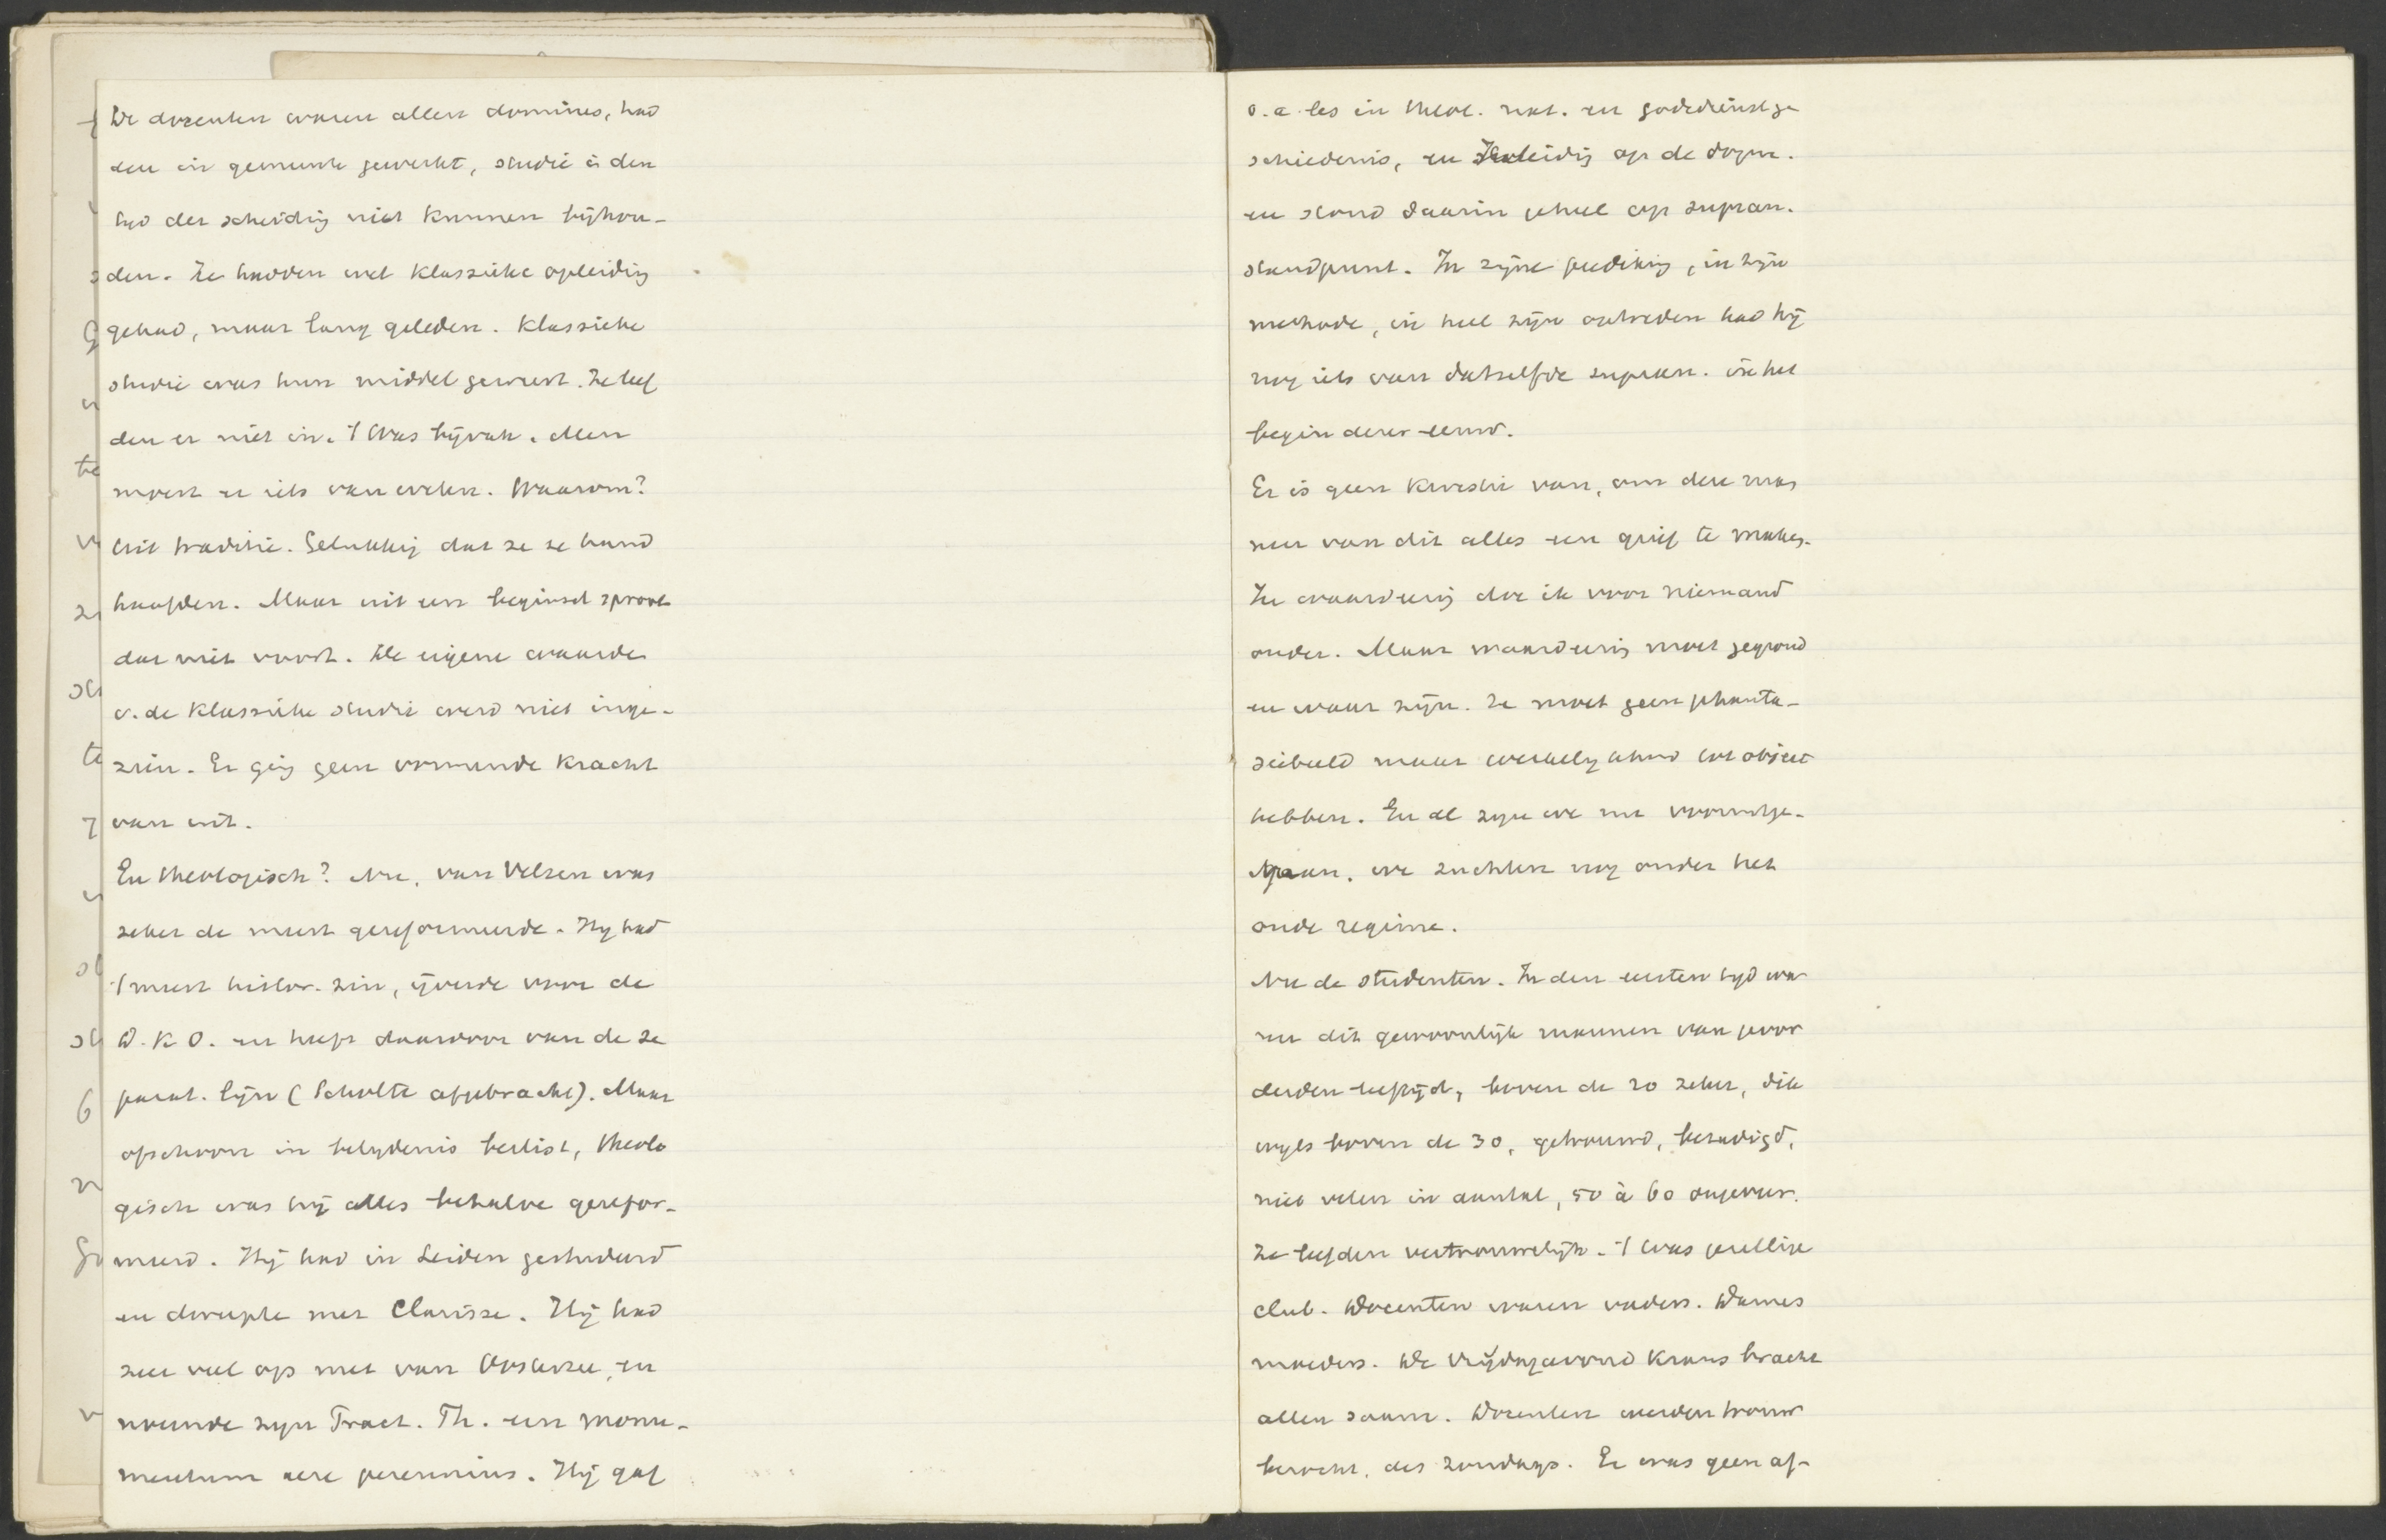 De docenten waren allen domines, had
den in gemeente gewerkt, studie in den
tijd der scheiding niet kunnen bijhou-
den. Ze hadden wel klassieke opleiding
gehad, maar lang geleden. Klassieke
studie was hun middel geweest. Ze leef
den er niet in. 't Was bijvak. Men
moest er iets van weten. Waarom?
Uit traditie. Gelukkig dat ze ze hand
haafden. Maar uit een beginsel sproot
dat niet voort. De eigene waarde
v. de klassieke studie werd niet inge-
zien. Er ging geen vormende kracht
van uit.
En theologisch? Nu, van Velzen was
zeker de meest gereformeerde. Hij had
't meest histor. zin, ijverde voor de
D.K.O. en heeft daardoor van de se
parat. lijn (Scholte afgebracht). Maar
ofschoon in belydenis beslist, theolo
gisch was hij alles behalve gerefor-
meerd. Hij had in Leiden gestudeerd
en dweepte met Clarisse. Hij had
zeer veel op met van Oosterzee, en
noemde zijn Tract. Th. een monu-
mentum aere perennius. Hij gaf
o.a. les in theol. nat. en godsdienstge
schiedenis, en Inleidig op de dogm.
en stond daarin geheel op supran.
standpunt. In zijne prediking, in zijn
methode, in heel zijn optreden had hij
nog iets van datzelfde supran. in het
begin dezer eeuw.
Er is geen kwestie van, om dezen man
nen van dit alles een grief te maken.
In waardeering doe ik voor niemand
onder. Maar waardeering moet gegrond
en waar zijn. Ze moet geen phanta-
siebeeld maar werkelykheid tot object
hebben. En al zyn we nu vooruitge-
gaan, we zuchten nog onder het
oude regime.
Nu de studenten. In den eersten tyd wa
ren dit gewoonlijk mannen van gevor
derden leeftijd, boven de 20 zeker, dik
wyls boven de 30, getrouwd, bezadigd,
niet velen in aantal, 50 à 60 ongeveer.
Ze leefden vertrouwelijk. 't Was gezellige
club. Docenten waren vaders. Dames
moeders. De Vrijdagavond krans bracht
allen saam. Docenten werden trouw
bezocht, des Zondags. Er was geen af-